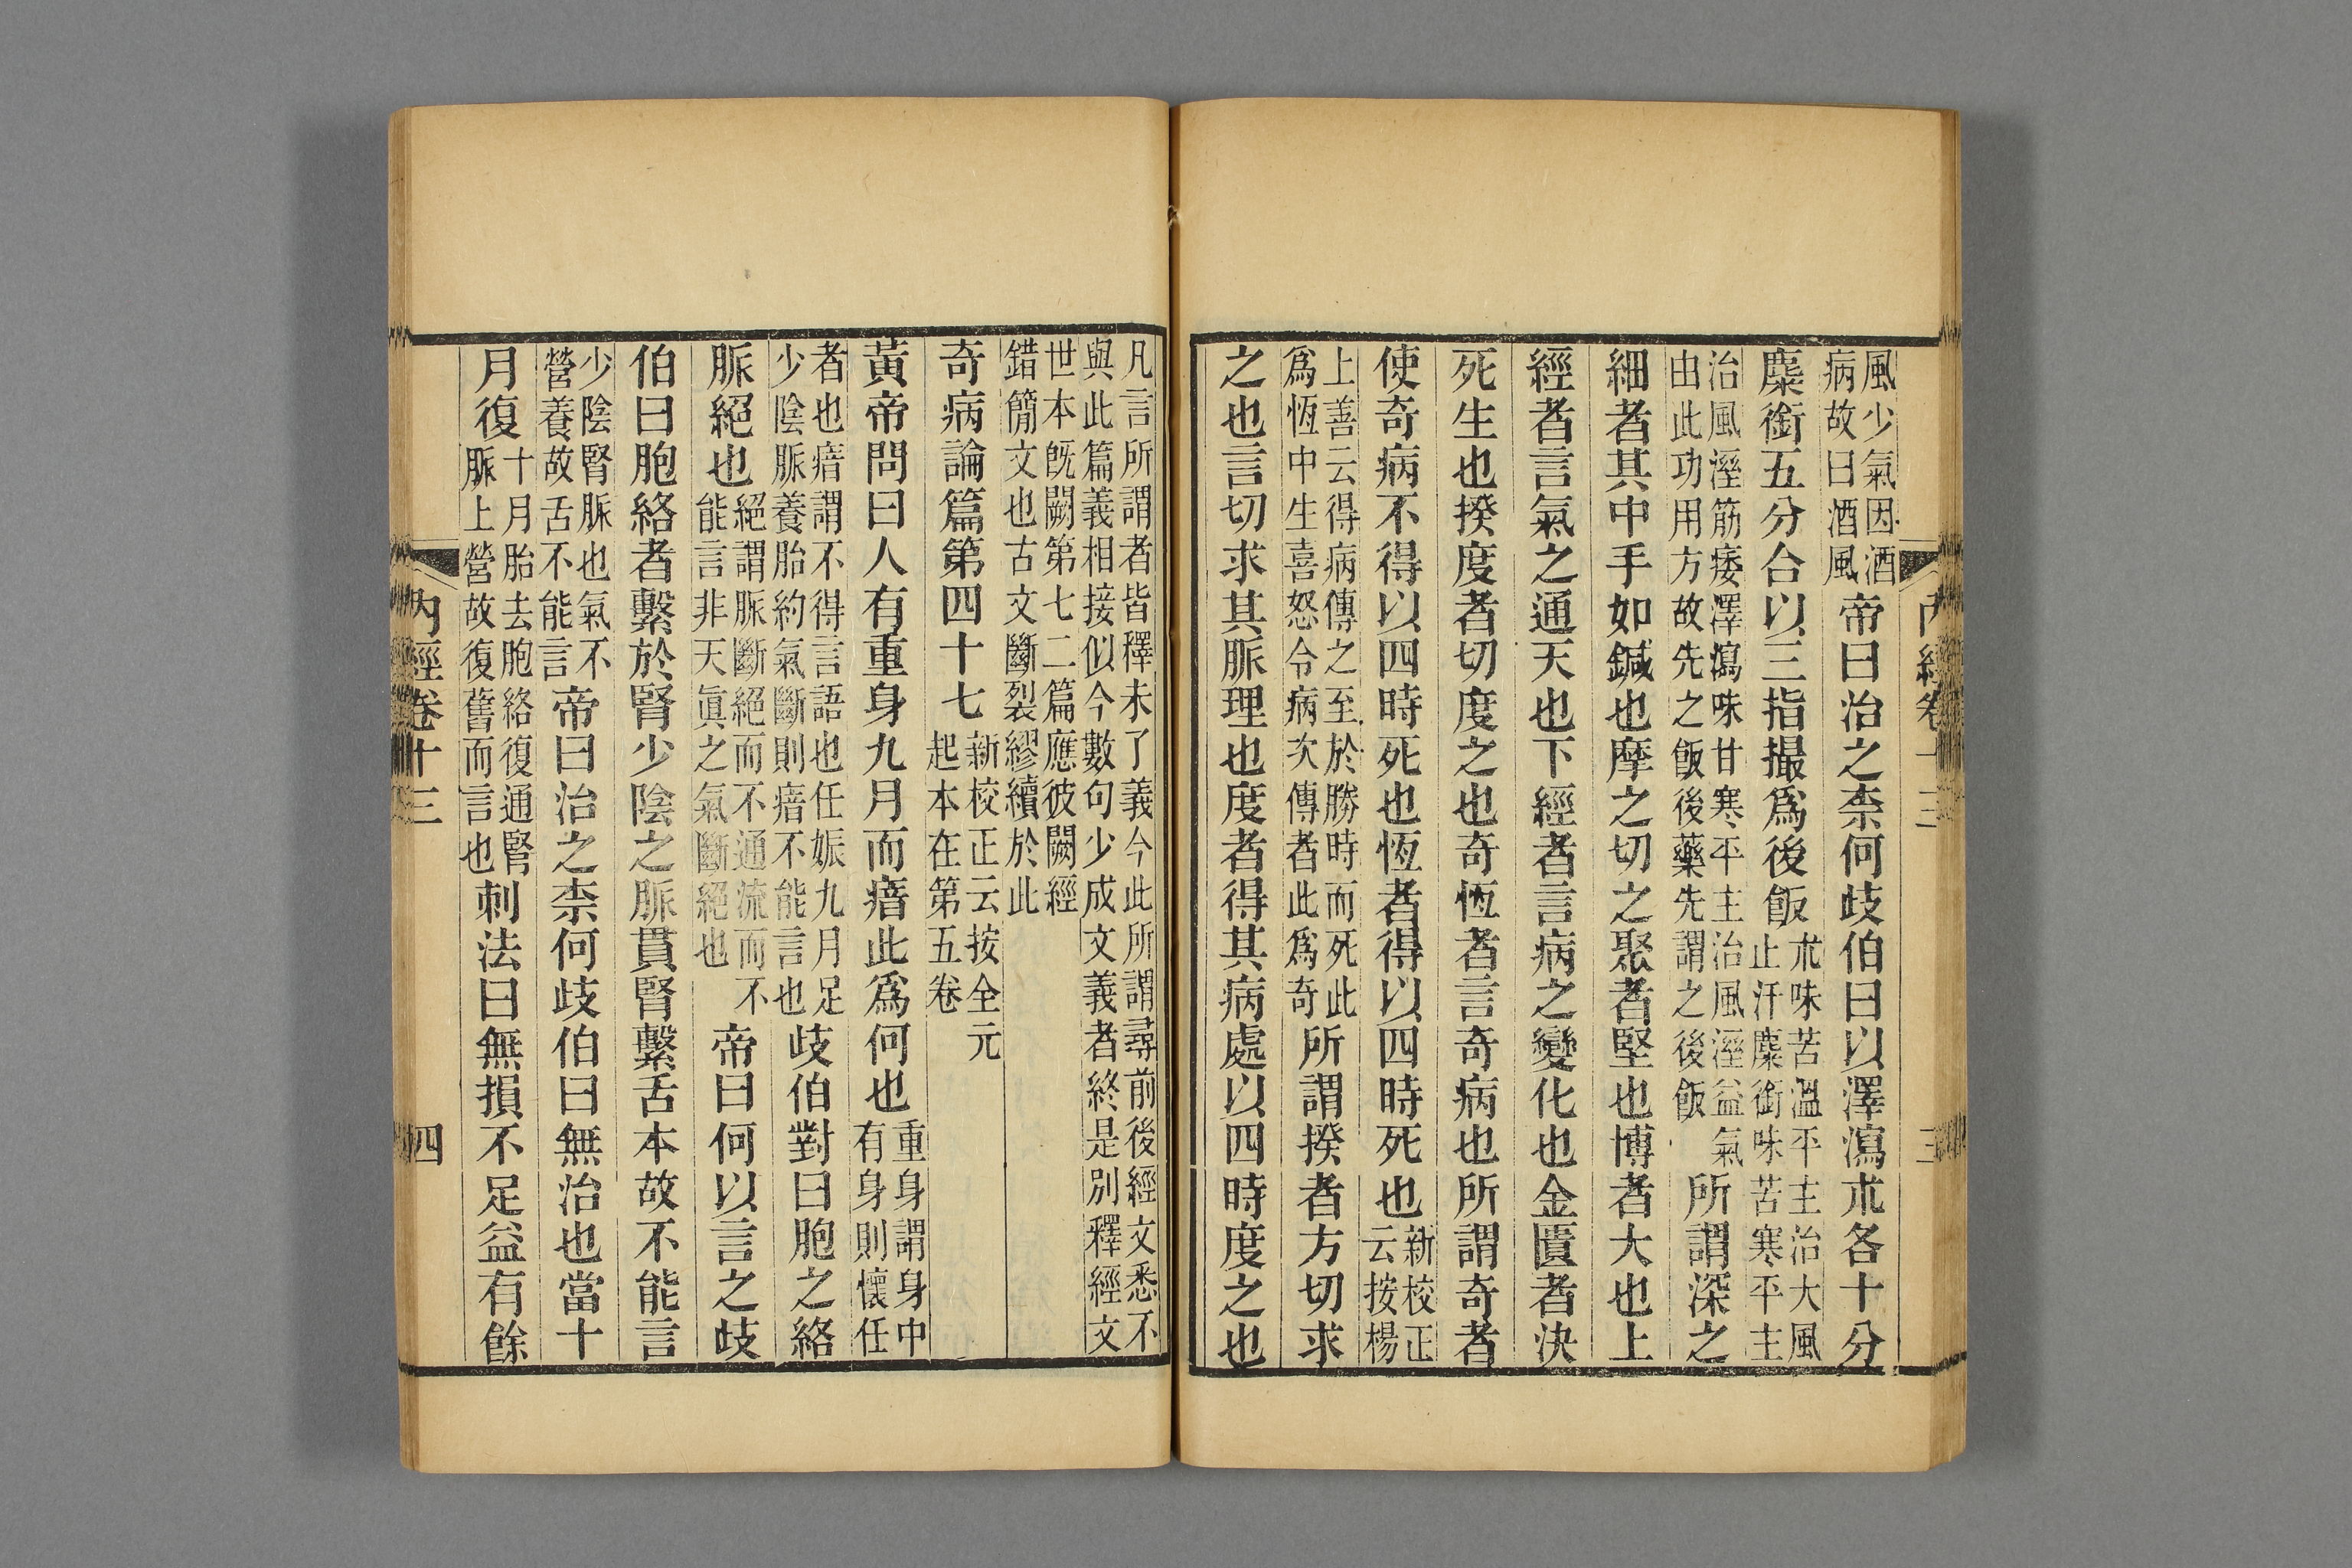 風少氣因酒
病故曰酒風
帝曰治之柰何歧伯曰以澤瀉朮各十分
麋銜五分合以三指撮爲後飯
朮味苦溫平主治大風
止汗麋銜味苦寒平主
治風溼筋痿澤瀉味甘寒平主治風溼益氣
由此功用方故先之飯後藥先謂之後飯
所謂深之
細者其中手如鍼也摩之切之聚者堅也博者大也上
經者言氣之通天也下經者言病之變化也金匱者決
死生也揆度者切度之也奇恆者言奇病也所謂奇者
使奇病不得以四時死也恆者得以四時死也
新校正
云按楊
上善云得病傳之至於勝時而死此
爲恆中生喜怒令病次傳者此爲奇
所謂揆者方切求
之也言切求其脈理也度者得其病處以四時度之也
凡言所謂者皆釋未了義今此所謂尋前後經文悉不
與此篇義相接似今數句少成文義者終是別釋經文
世本既闕第七二篇應彼闕經
錯簡文也古文斷裂繆續於此
奇病論篇第四十七
新校正云按全元
起本在第五卷
黃帝問曰人有重身九月而瘖此爲何也
重身謂身中
有身則懷任
者也瘖謂不得言語也任娠九月足
少陰脈養胎約氣斷則瘖不能言也
歧伯對曰胞之絡
脈絕也
絕謂脈斷絕而不通流而不
能言非天眞之氣斷絕也
帝曰何以言之歧
伯曰胞絡者繫於腎少陰之脈貫腎繫舌本故不能言
少陰腎脈也氣不
營養故舌不能言
帝曰治之柰何歧伯曰無治也當十
月復
十月胎去胞絡復通腎
脈上營故復舊而言也
刺法曰無損不足益有餘
內經卷十三
四